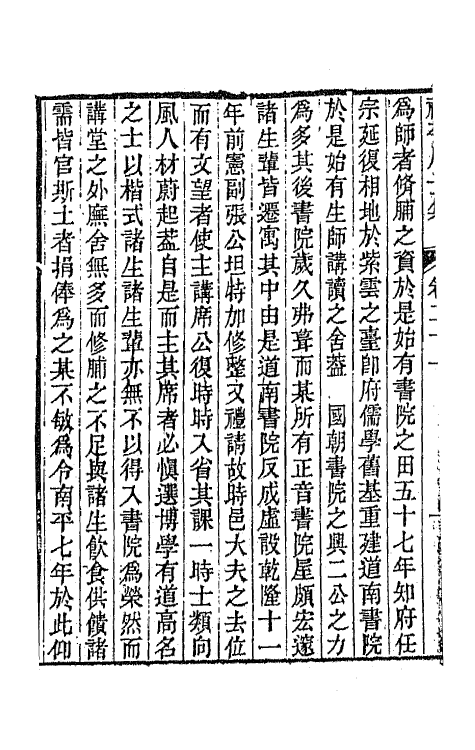 卷二十一
為師者脩脯之資於是始有書院之田五十七年知府任
宗延復相地於紫雲之臺卽府儒學舊基重建道南書院
於是始有生師講讀之舍蓋　國朝書院之興二公之力
為多其後書院歲久弗葺而某所有正音書院屋頗宏邃
諸生輩皆遷寓其中由是道南書院反成虛設乾隆十一
年前憲副張公坦特加修整又禮請故時邑大夫之去位
而有文望者使主講席公復時時入省其課一時士類向
風人材蔚起蓋自是而主其席者必慎選博學有道高名
之士以楷式諸生諸生輩亦無不以得入書院為榮然而
講堂之外廡舍無多而修脯之不足與諸生飲食供饋諸
需皆官斯土者捐俸為之某不敏為令南平七年於此仰